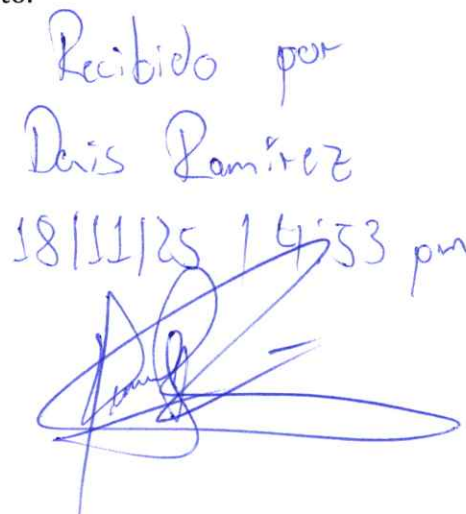 to.
Recibido por
Denis Ramirez
18/11/25 / 4:53 pm